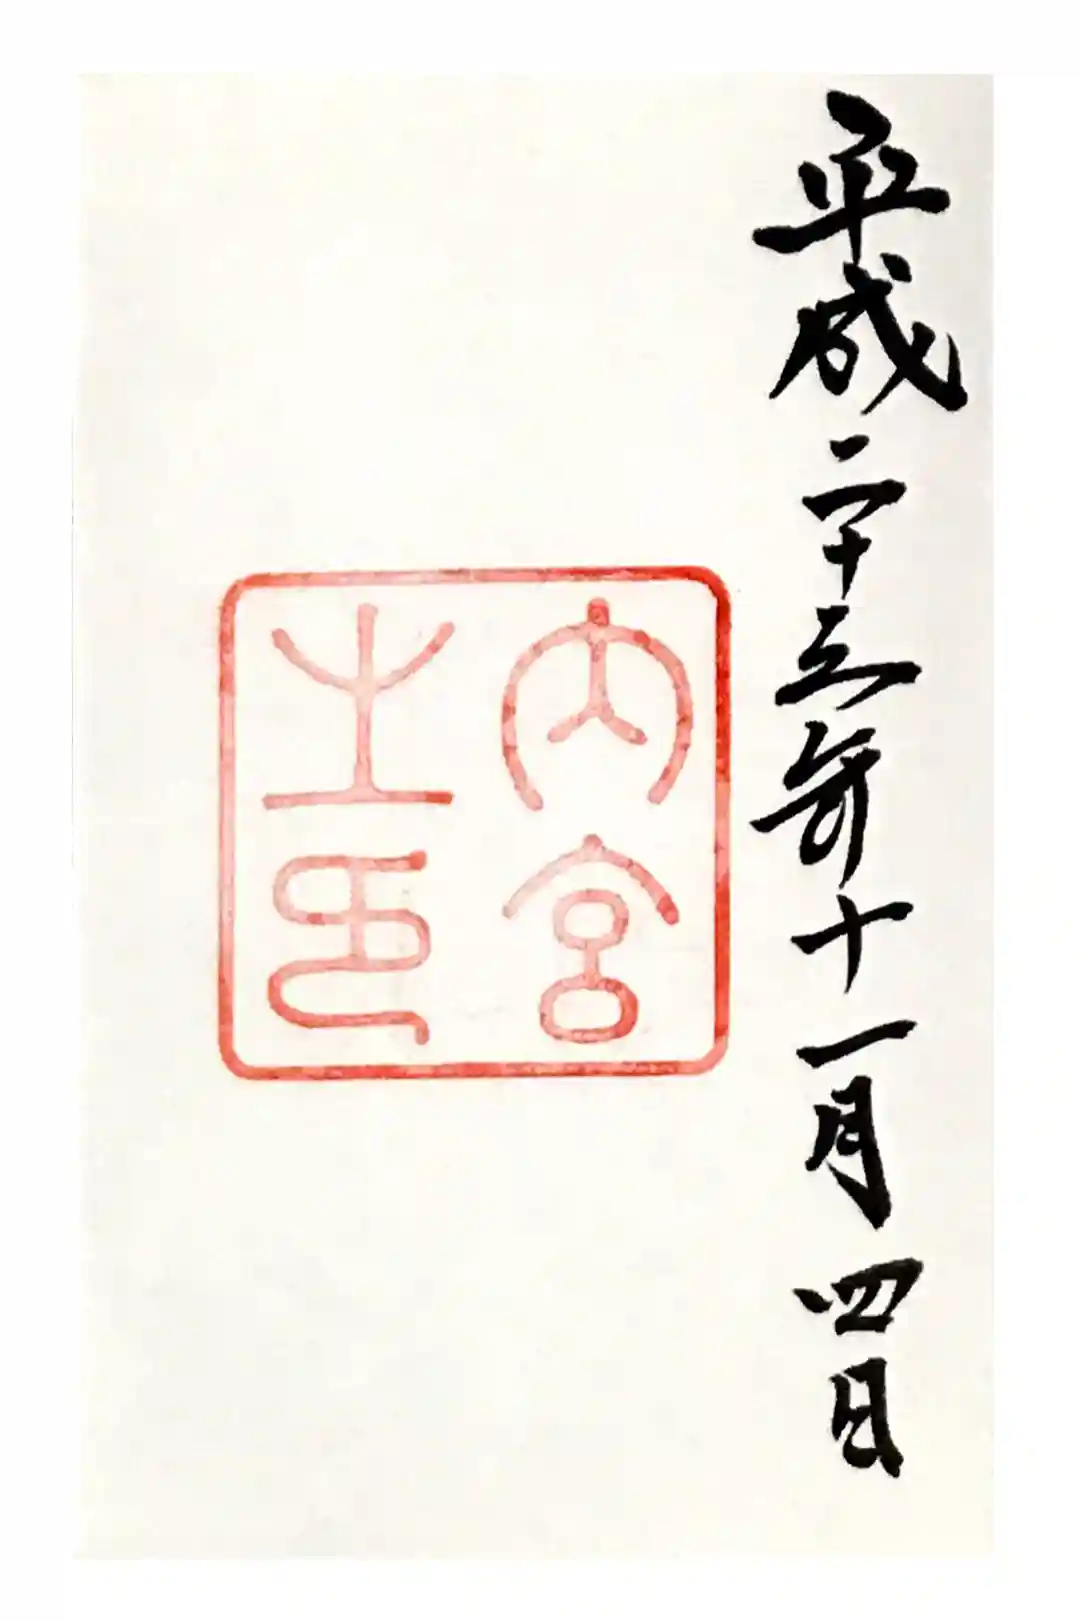 平成二十三年十一月四日
内宮
之印